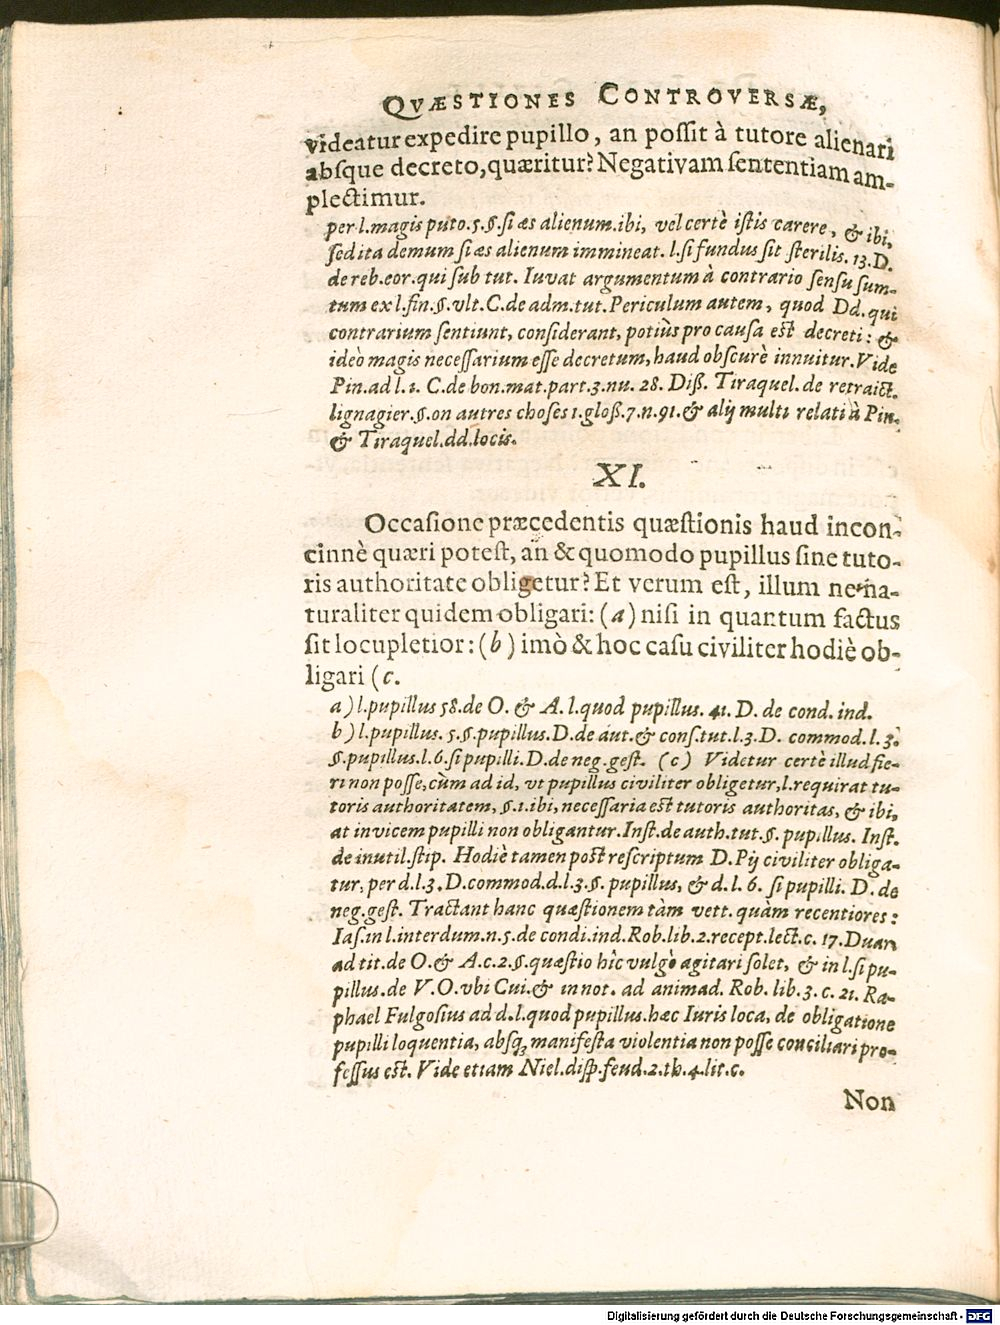 QVÆSTIONES CONTROVERSÆ,
videatur expedire pupillo, an poſſit à tutore alienari
abſque decreto, quæritur? Negativam ſententiam am-
plectimur.
per l. magis puto. 5. §. ſi æs alienum. ibi, vel certè iſtis carere, & ibi,
ſed ita demum ſi æs alienum immineat. l. ſi fundus ſit ſterilis. 13. D.
de reb. eor. qui ſub tut. Iuvat argumentum à contrario ſenſu ſum-
tum ex l. fin. §. vlt. C. de adm. tut. Periculum autem, quod Dd. qui
contrarium ſentiunt, conſiderant, potiùs pro cauſa eſt decreti: &
ideò magis neceſſarium eſſe decretum, haud obſcurè innuitur. Vide
Pin. ad l. 1. C. de bon. mat. part. 3. nu. 28. Diß. Tiraquel. de retraict.
lignagier. §. on autres choſes 1. gloß. 7. n. 91. & alij multi relati à Pin.
& Tiraquel. dd. locis.
XI.
Occaſione præcedentis quæſtionis haud incon-
cinnè quæri poteſt, an & quomodo pupillus ſine tuto-
ris authoritate obligetur? Et verum eſt, illum ne na-
turaliter quidem obligari: (a) niſi in quantum factus
ſit locupletior: (b) imò & hoc caſu civiliter hodiè ob-
ligari (c.
a) l. pupillus 58. de O. & A. l. quod pupillus. 41. D. de cond. ind.
b) l. pupillus. 5. §. pupillus. D. de aut. & conſ. tut. l. 3. D. commod. l. 3.
§. pupillus. l. 6. ſi pupilli. D. de neg. geſt. (c) Videtur certè illud fie-
ri non poſſe, cùm ad id, vt pupillus civiliter obligetur, l. requirat tu-
toris authoritatem, §. 1. ibi, neceſſaria eſt tutoris authoritas, & ibi,
at invicem pupilli non obligantur. Inſt. de auth. tut. §. pupillus. Inſt.
de inutil. ſtip. Hodiè tamen poſt reſcriptum D. Pij civiliter obliga-
tur, per d. l. 3. D. commod. d. l. 3. §. pupillus, & d. l. 6. ſi pupilli. D. de
neg. geſt. Tractant hanc quæſtionem tàm vett. quàm recentiores:
Iaſ. in l. interdum. n. 5. de condi. ind. Rob. lib. 2. recept. lect. c. 17. Duar.
ad tit. de O. & A. c. 2. §. quæſtio hîc vulgò agitari ſolet, & in l. ſi pu-
pillus. de V. O. vbi Cui. & in not. ad animad. Rob. lib. 3. c. 21. Ra-
phael Fulgoſius ad d. l. quod pupillus. hæc Iuris loca, de obligatione
pupilli loquentia, abſq; manifeſta violentia non poſſe conciliari pro-
feſſus eſt. Vide etiam Niel. diſp. feud. 2. th. 4. lit. c.
Non
Digitalisierung gefördert durch die Deutsche Forschungsgemeinschaft - DFG